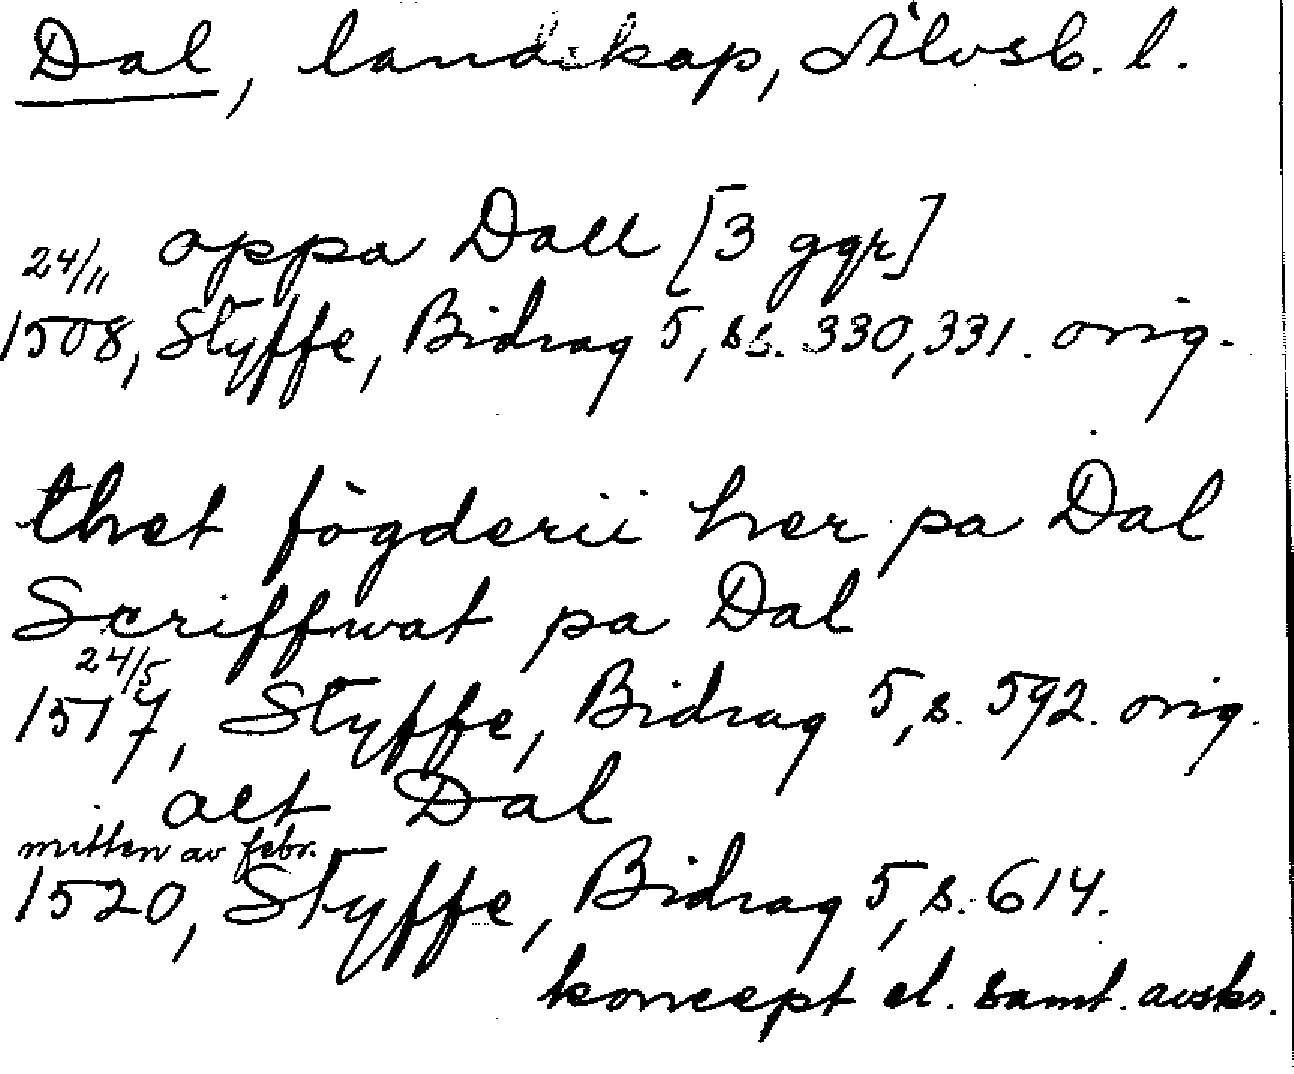 Dal, landskap, Älvsb. l.
oppa Dall [3 ggr]
24/11
1508, Styffe, Bidrag 5, ss. 330, 331. orig.
thet fögderii her pa Dal
Scriffwat pa Dal
24/5
1517, Styffe, Bidrag 5, s. 592. orig.
alt Dal
mitten av febr.
1520, Styffe, Bidrag 5, s. 614.
koncept el. samt. avskr.